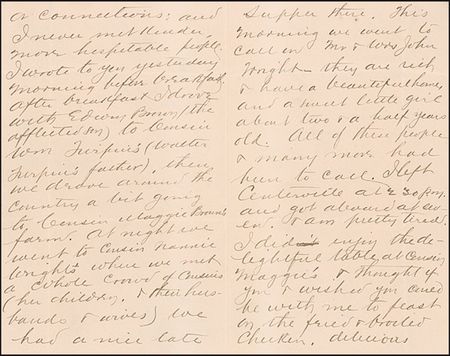 or connections; and
I never met kinder,
more hospitable people.
I wrote to you yesterday
morning before breakfast,
After breakfast I drove
with Edwin Brown (the
afflicted boy) to Cousin
Wm Turpin's (Walter
Turpin's father), then
we drove around the
country a bit going
to Cousin Maggie Brown's
farm. At night we
went to Cousin Nannie
Wright's when we met
a whole crowd of Cousins
(her children, & their hus-
bands & wives) We
had a nice late
supper there. This
morning we went to
call on Mr & Mrs John
Wright - they are rich
& have a beautiful home,
and a sweet little girl
about two & a half years
old. All of these people
& many more had
been to call. I left
Centerville at 2:30 p.m.
and got aboard at sev-
en. & am pretty tired.
I did enjoy the de-
lightful table at Cousin
Maggie's & thought of
you & wished you could
be with me to feast
on the fried & broiled
chicken, delicious